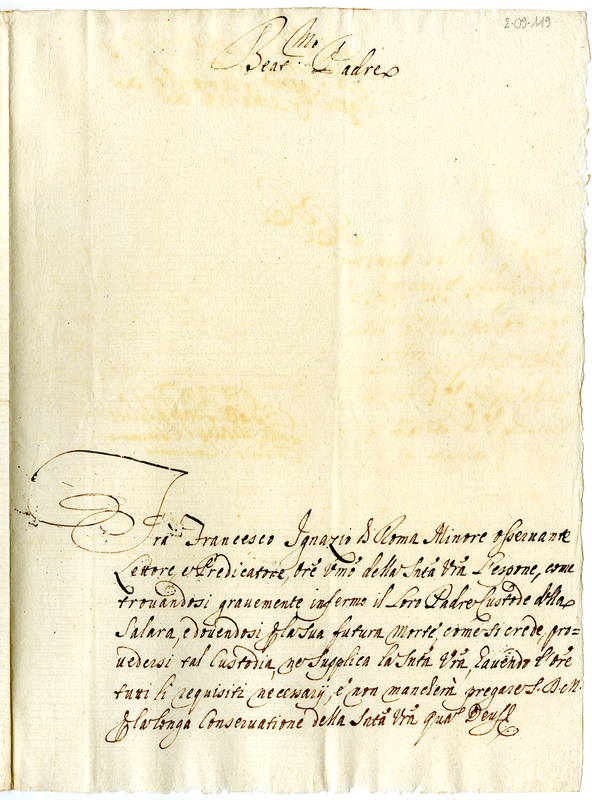 2-09-119
Beat.mo Padre
Fra Francesco Ignazio di Roma Minore osservante
Lettore, e Predicatore, Ore Umo della Sntà Vra l'espone, come
trovandosi gravemente infermo il loro Padre Custode della
Salara, e dovendosi p la sua futura Morte come si crede, pro=
vedersi tal Custodia, ne supplica la Sntà Vra, havendo l'Ore
tutti li requisiti necessarij, e non mancherà pregare S. D. M.
p la longa Conservatione della Sntà Vra quā Deus